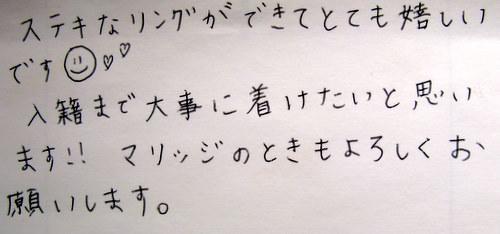 ステキなリングができてとても嬉しい
です☺♡♡
入籍まで大事に着けたいと思い
ます!! マリッジのときもよろしくお
願いします。